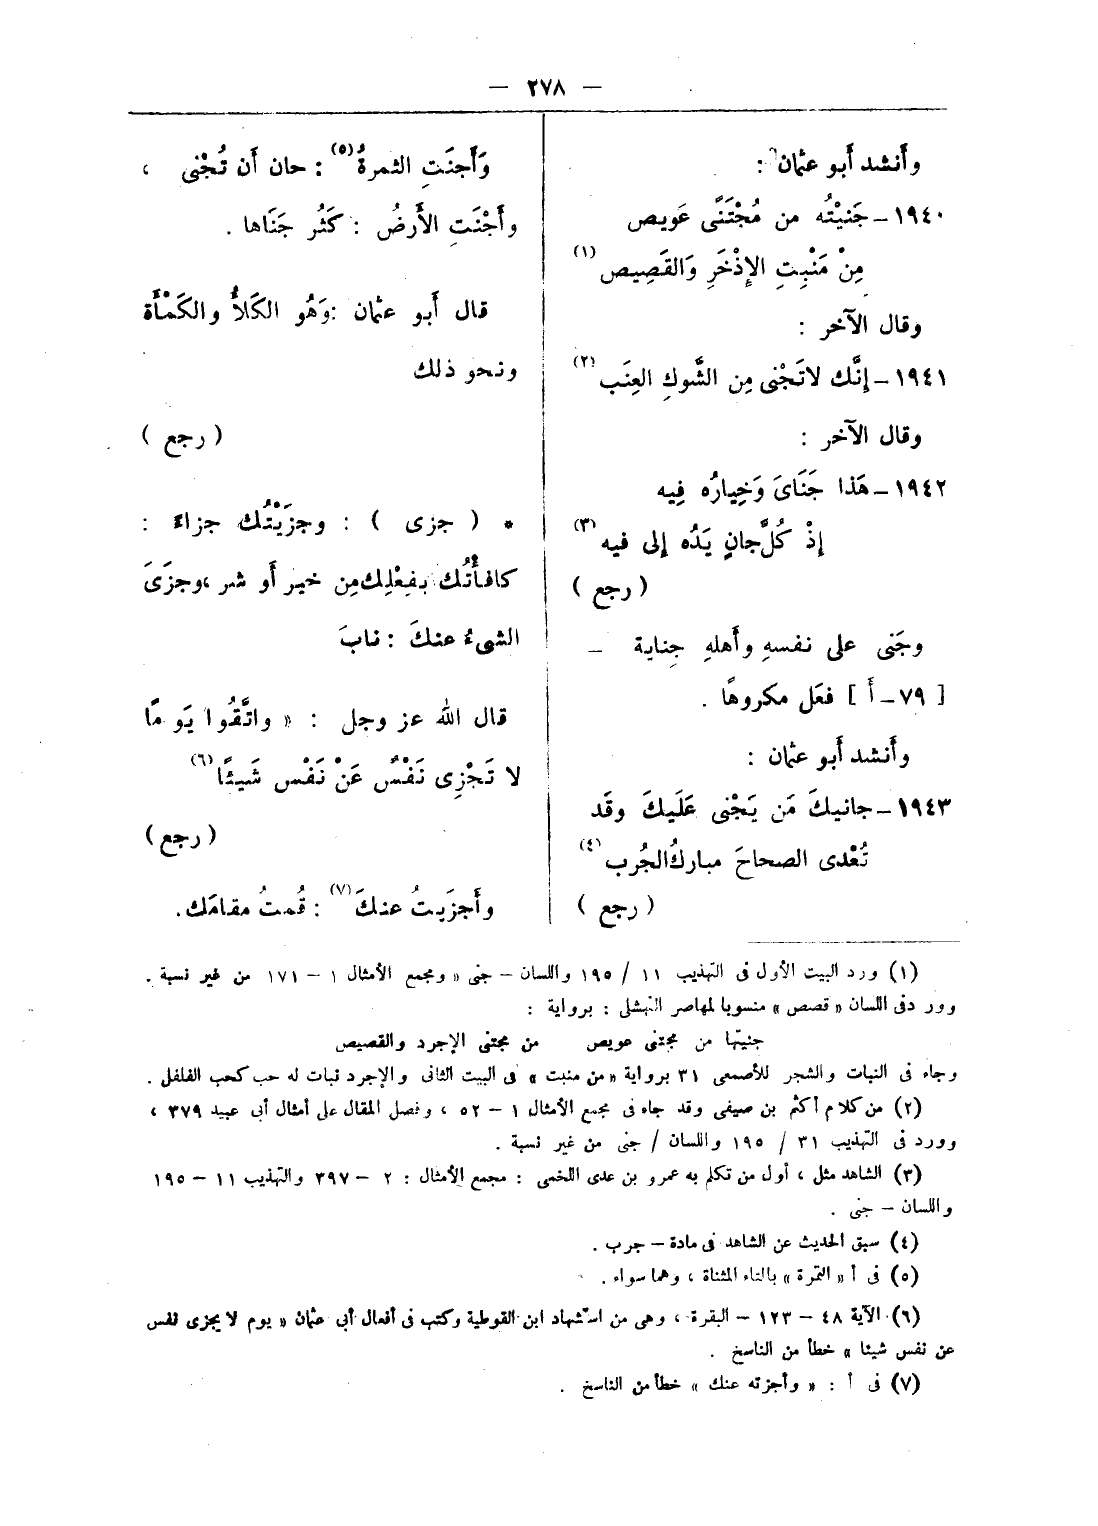 — ٢٧٨ —
وأَنشد أَبو عثمان :
١٩٤٠ – جَنيْتُه من مُجْتَنًى عَويص
مِنْ مَنْبِتِ الإِذْخَرِ وَالقَصِيص (١)
وقال الآخر :
١٩٤١ – إنَّك لاتَجْنى مِن الشَّوكِ العِنَب (٢)
وقال الآخر :
١٩٤٢ – هَذا جَنَاىَ وَخِيارُه فِيه
إذْ كُلَّ جانٍ يَدُه إلى فيه (٣)
( رجع )
وجَنى على نفسهِ وأَهلهِ جِناية –
[ ٧٩ – أَ ] فعَل مكروهًا .
وأَنشد أَبو عثمان :
١٩٤٣ – جانيكَ مَن يَجْنى عَلَيكَ وقَد
تُعْدى الصحاحَ مباركُ الجُرب (٤)
( رجع )
وَأَجنَتِ الثمرةُ (٥) : حان أَن تُجْنى ،
وأَجْنَتِ الأَرضُ : كَثُر جَنَاها .
قال أَبو عثمان : وَهُو الكَلأُ والكَمْأَة
ونحو ذلك
( رجع )
* ( جزى ) : وجزَيْتُك جزاءً :
كافأْتُك بفِعْلِك مِن خير أَو شر ، وجزَىَ
الشىءُ عنكَ : نابَ
قال الله عز وجل : « واتَّقُوا يَومًا
لا تَجْزِى نَفْسٌ عَنْ نَفْس شَيئًا (٦)
( رجع )
وأَجزَيتُ عنكَ (٧) : قُمتُ مقامَك .
(١) ورد البيت الأول فى التهذيب ١١ / ١٩٥ واللسان – جنى « ومجمع الأمثال ١ – ١٧١ من غير نسبة .
وورد فى اللسان « قصص » منسوبا لمهاصر النهشلى : برواية :
جنيتها من مجتنى عويص من مجتنى الإجرد والقصيص
وجاء فى النبات والشجر للأصمعى ٣١ برواية « من منبت » فى البيت الثانى والإجرد نبات له حب كحب الفلفل .
(٢) من كلام أكثم بن صيفى وقد جاء فى مجمع الأمثال ١ – ٥٢ ، وفصل المقال على أمثال أبى عبيد ٣٧٩ ،
وورد فى التهذيب ٣١ / ١٩٥ واللسان / جنى من غير نسبة .
(٣) الشاهد مثل ، أول من تكلم به عمرو بن عدى اللخمى : مجمع الأمثال : ٢ – ٣٩٧ والتهذيب ١١ – ١٩٥
واللسان – جنى .
(٤) سبق الحديث عن الشاهد فى مادة – جرب .
(٥) فى أ « التمرة » بالتاء المثناة ، وهما سواء .
(٦) الآية ٤٨ – ١٢٣ – البقرة ، وهى من استشهاد ابن القوطية وكتب فى أفعال أبى عثمان « يوم لا يجزى نفس
عن نفس شيئا » خطأ من الناسخ .
(٧) فى أ : « وأجزته عنك » خطأ من الناسخ .